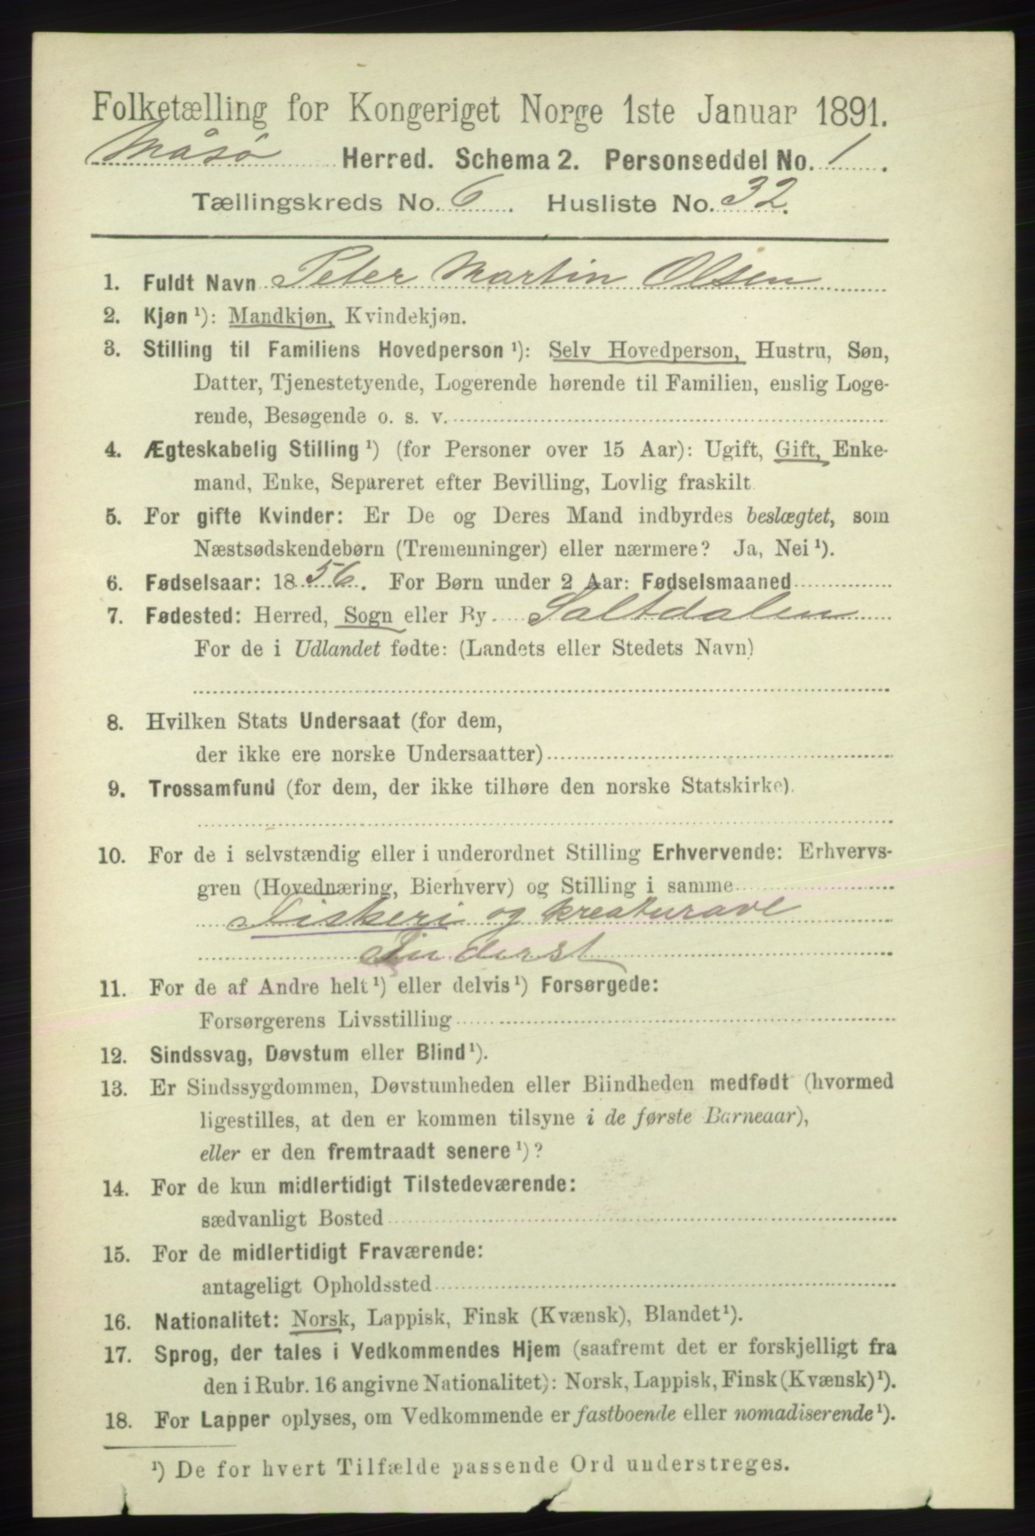 Folketælling for Kongeriget Norge 1ste Januar 1891.
Måsø Herred. Schema 2. Personseddel No. 1.
Tællingskreds No. 6. Husliste No. 32.
1. Fuldt Navn Peter Martin Olsen
2. Kjøn ¹): Mandkjøn, Kvindekjøn.
3. Stilling til Familiens Hovedperson ¹): Selv Hovedperson, Hustru, Søn,
Datter, Tjenestetyende, Logerende hørende til Familien, enslig Loge-
rende, Besøgende o. s. v.
4. Ægteskabelig Stilling ¹) (for Personer over 15 Aar): Ugift, Gift, Enke-
mand, Enke, Separeret efter Bevilling, Lovlig fraskilt
5. For gifte Kvinder: Er De og Deres Mand indbyrdes beslægtet, som
Næstsødskendebørn (Tremenninger) eller nærmere? Ja, Nei ¹).
6. Fødselsaar: 1856. For Børn under 2 Aar: Fødselsmaaned
7. Fødested: Herred, Sogn eller By Saltdalen
For de i Udlandet fødte: (Landets eller Stedets Navn)
8. Hvilken Stats Undersaat (for dem,
der ikke ere norske Undersaatter)
9. Trossamfund (for dem, der ikke tilhøre den norske Statskirke).
10. For de i selvstændig eller i underordnet Stilling Erhvervende: Erhvervs-
gren (Hovednæring, Bierhverv) og Stilling i samme
Fiskeri og kreaturavl
Inderst
11. For de af Andre helt ¹) eller delvis ¹) Forsørgede:
Forsørgerens Livsstilling
12. Sindssvag, Døvstum eller Blind ¹).
13. Er Sindssygdommen, Døvstumheden eller Blindheden medfødt (hvormed
ligestilles, at den er kommen tilsyne i de første Barneaar),
eller er den fremtraadt senere ¹)?
14. For de kun midlertidigt Tilstedeværende:
sædvanligt Bosted
15. For de midlertidigt Fraværende:
antageligt Opholdssted
16. Nationalitet: Norsk, Lappisk, Finsk (Kvænsk), Blandet ¹).
17. Sprog, der tales i Vedkommendes Hjem (saafremt det er forskjelligt fra
den i Rubr. 16 angivne Nationalitet): Norsk, Lappisk, Finsk (Kvænsk) ¹).
18. For Lapper oplyses, om Vedkommende er fastboende eller nomadiserende ¹).
¹) De for hvert Tilfælde passende Ord understreges.